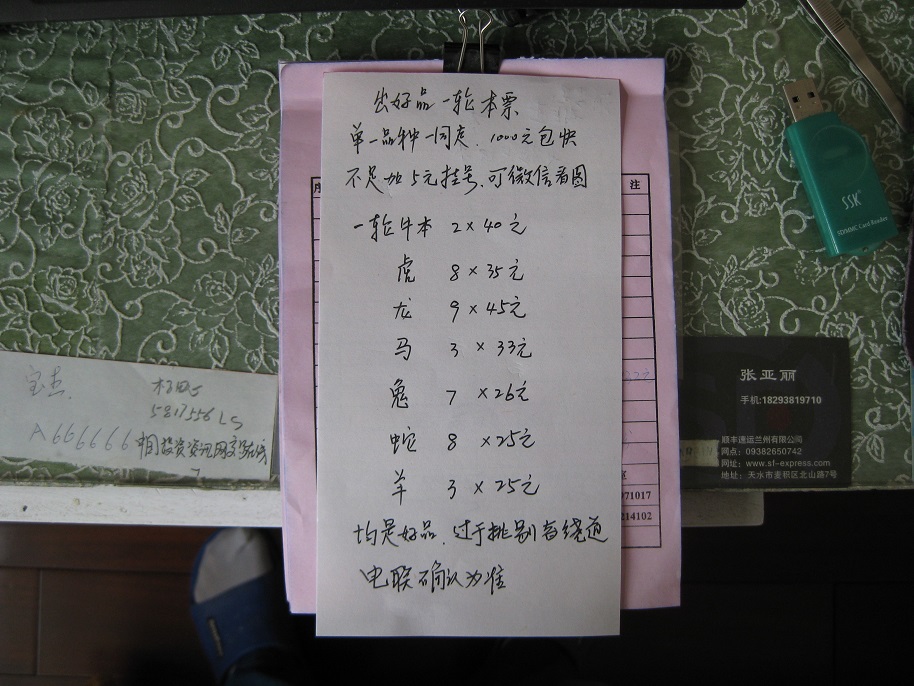 出好品一轮本票
单一品种一同走.1000元包快
不足加5元挂号.可微信看图
一轮牛本 2×40元
虎 8×35元
龙 9×45元
马 3×33元
兔 7×26元
蛇 8×25元
羊 3×25元
均是好品.过于挑剔者绕道
电联确认为准
序
注
22元
971017
214102
宝杰
5817556LS
A666666中国投资资讯网交易在线
SSK
SD/MMC Card Reader
张亚丽
手机:18293819710
顺丰速运兰州有限公司
网点:09382650742
网址:www.sf-express.com
地址:天水市麦积区北山路7号